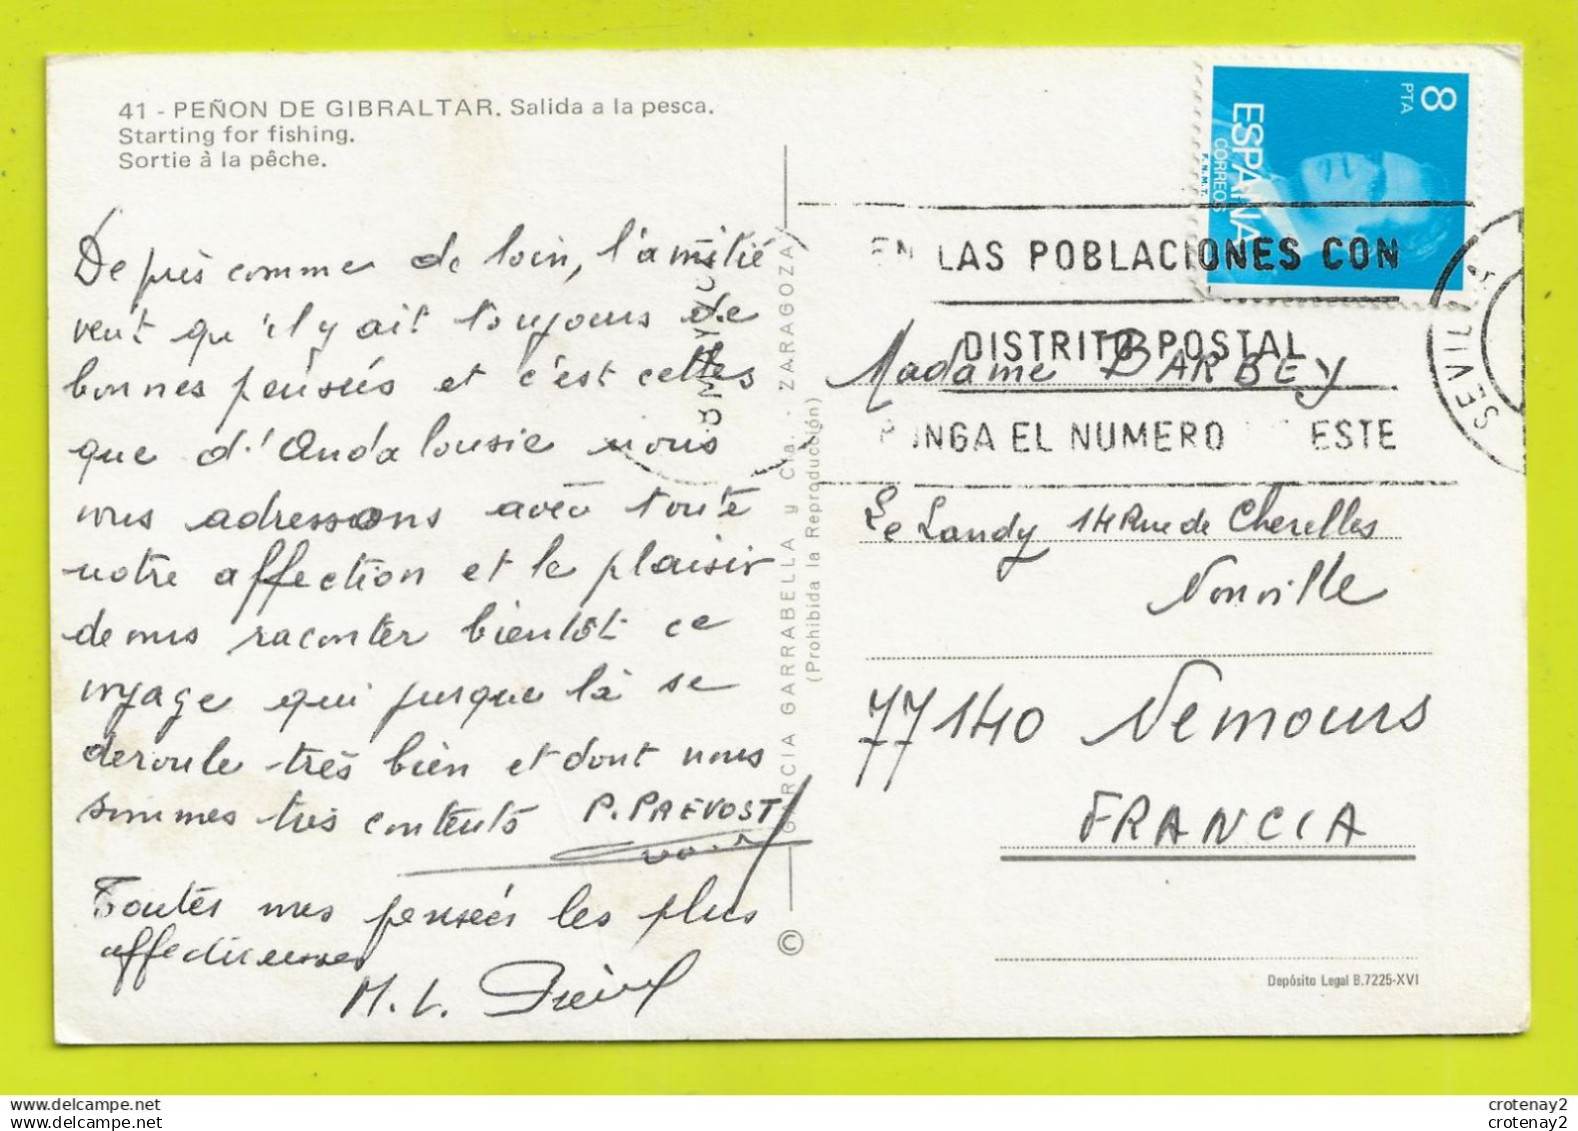 41 - PEÑON DE GIBRALTAR. Salida a la pesca.
Starting for fishing.
Sortie à la pêche.
De près comme de loin, l'amitié
veut qu'il y ait toujours de
bonnes pensées et c'est celles
que d'Andalousie nous
vous adressons avec toute
notre affection et le plaisir
de vous raconter bientôt ce
voyage qui jusque là se
deroule très bien et dont nous
sommes très contents P. PREVOST
Toutes mes pensées les plus
affectueuses
M. L.
GARCIA GARRABELLA y Cía. - ZARAGOZA
(Prohibida la Reproducción)
©
8 PTA
ESPAÑA
CORREOS
F.N.M.T.
EN LAS POBLACIONES CON
DISTRITO POSTAL
PONGA EL NUMERO ESTE
SEVILLA
Madame BARBEY
Le Landy 14 Rue de Cherelles
Nonville
77140 Nemours
FRANCIA
Depósito Legal B.7225-XVI
crotenay2
crotenay2